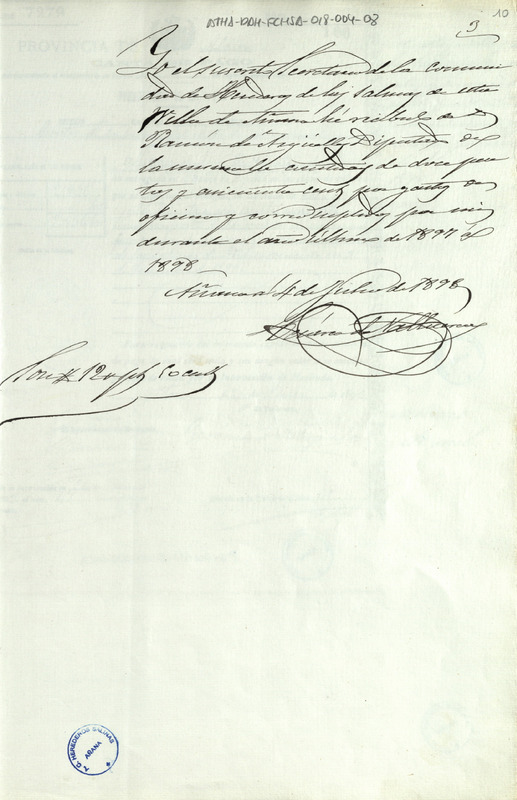 ATHA-DAH-FCHSA-018-004-03
10
3
Yo el infrascrito Secretario de la comuni
dad de Herederos de las salinas de esta
Villa de Añana he recibido de D
Ramón de Diputado de
la misma la cantidad de doce pese
tas y cincuenta cents por gastos de
oficina y cumplidos por mi
durante el año último de 1897 a
1898
Añana a 4 de Julio de 1898
de
Son # 12 ps 50 cents
T. C. HEREDEROS SALINAS
AÑANA